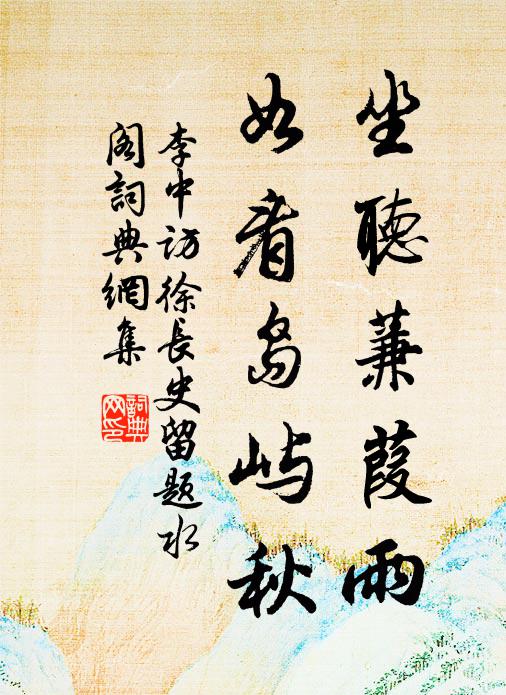 坐聽蒹葭雨
如看島屿秋
李中訪徐長史留題水
閣詞典網集
詞典網印